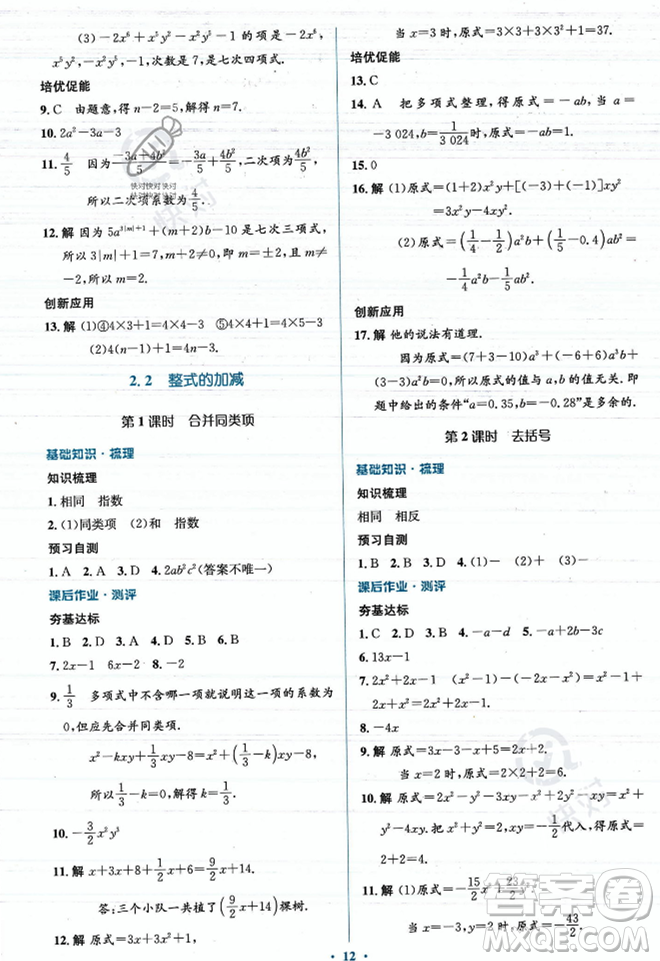 (3)-2x⁶+x⁵y²-x²y⁵-1,次数是7,是七次四项式.
培优促能
9.C 由题意,得n-2=5,解得n=7.
10.2a²-3a-3
11.4/5 因为(-3a+4b²)/5=-3a/5+4b²/5,二次项为4b²/5,
所以二次项系数为4/5.
12.解 因为5a^(3|m|+1)+(m+2)b-10是七次三项式,
所以3|m|+1=7,且m+2≠0,即m=±2,且m≠
-2.因此m=2.
创新应用
13.解 (1)④4×3+1=4×4-3 ⑤4×4+1=4×5-3
(2)4(n-1)+1=4n-3.
2.2 整式的加减
第1课时 合并同类项
基础知识·梳理
知识梳理
1.相同 指数
2.(1)同类项 (2)和 指数
预习自测
1.A 2.A 3.D 4.2ab²c(答案不唯一)
课后作业·测评
夯基达标
1.B 2.B 3.D 4.B 5.B 6.D
7.2x-1 6x-2 8.-2
9.1/3 多项式中不含哪一项就说明该项的系数为
0,但应先合并同类项.
x²-kxy+1/3xy-8=x²+(1/3-k)xy-8,
所以1/3-k=0.所以k=1/3.
10.-3/2x²y³
11.解 x+3x+8+x/2+6=(9/2x+14)棵.
答:三个小队一共植了(9/2x+14)棵树.
12.解 原式=(3-3)x³y+(-4+4)xy+3x²+x+1=
当x=3时,原式=3×3+3×3²+1=37.
培优促能
13.C
14.A 把多项式整理,得原式=-ab,当a=
-3 024,b=1/3 024时,原式=1.
15.0
16.解 (1)原式=(1+2)x²y+[(-3)+(-1)]xy²
=3x²y-4xy².
(2)原式=(1/4-1/2)a²b+(2/5-0.4)ab²=
-1/4a²b-1/2a²b.
创新应用
17.解 他的说法有道理.
因为原式=(7+3-10)a³+(-6+6)a³b+(3-
3)a²b=0,所以原式的值与a,b的值无关.即
题中给出的条件“a=0.35,b=-0.28”是多余的.
第2课时 去括号
基础知识·梳理
知识梳理
相同 相反
预习自测
1.B 2.C 3.D 4.(1)- (2)+ (3)-
课后作业·测评
夯基达标
1.C 2.D 3.D 4.-a-d 5.2a+2b-3c
6.13x-1
7.2x²+2x-1 x²+x-(-x²-x+1)=x²+x+x²+x-1=
2x²+2x-1.
8.-4x
9.解 原式=6x-3-4x+5=2x+2.
当x=2时,原式=2×2+2=6.
10.解 原式=x²-2x³+4y+2x³-2x²=-x²+4y,把
x²-y=-4,y=-1/2代入,得原式=
2+2=4.
11.解 (1)原式=-15/2x+23/2z-3.
当x=-3,y=2时,原式=-43/2.
12